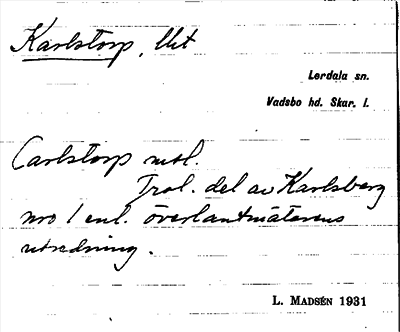 Karlstorp, Ut
Lerdala sn.
Vadsbo hd. Skar. l.
Carlstorp
Trol. del av Karlsberg
nro 1 enl. överlantmätarens
utredning.
L. MADSÉN 1931